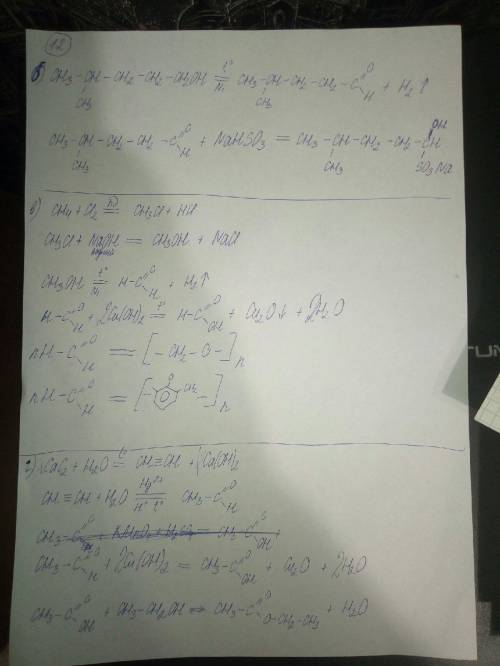 12
б) CH3-CH-CH2-CH2-CH2OH =t° Ni= CH3-CH-CH2-CH2-C=O H + H2↑
CH3 CH3
CH3-CH-CH2-CH2-C=O H + NaHSO3 = CH3-CH-CH2-CH2-CH OH
CH3 CH3 SO3Na
в) CH4 + Cl2 =hν= CH3Cl + HCl
CH3Cl + NaOH = CH3OH + NaCl
CH3OH =t° Ni= H-C=O H + H2↑
H-C=O H + 2Cu(OH)2 =t°= H-C=O OH + Cu2O↓ + 2H2O
nH-C=O H = [-CH2-O-]n
nH-C=O H = [- CH2 -]n
г) CaC2 + H2O = CH≡CH + Ca(OH)2
CH≡CH + H2O =Hg2+ H+ t°= CH3-C=O H
CH3-C + KMnO4 + H2SO4 = CH3-C=O OH
CH3-C=O H + 2Cu(OH)2 = CH3-C=O OH + Cu2O + 2H2O
CH3-C=O OH + CH3-CH2OH ⇌ CH3-C=O O-CH2-CH3 + H2O
TUN